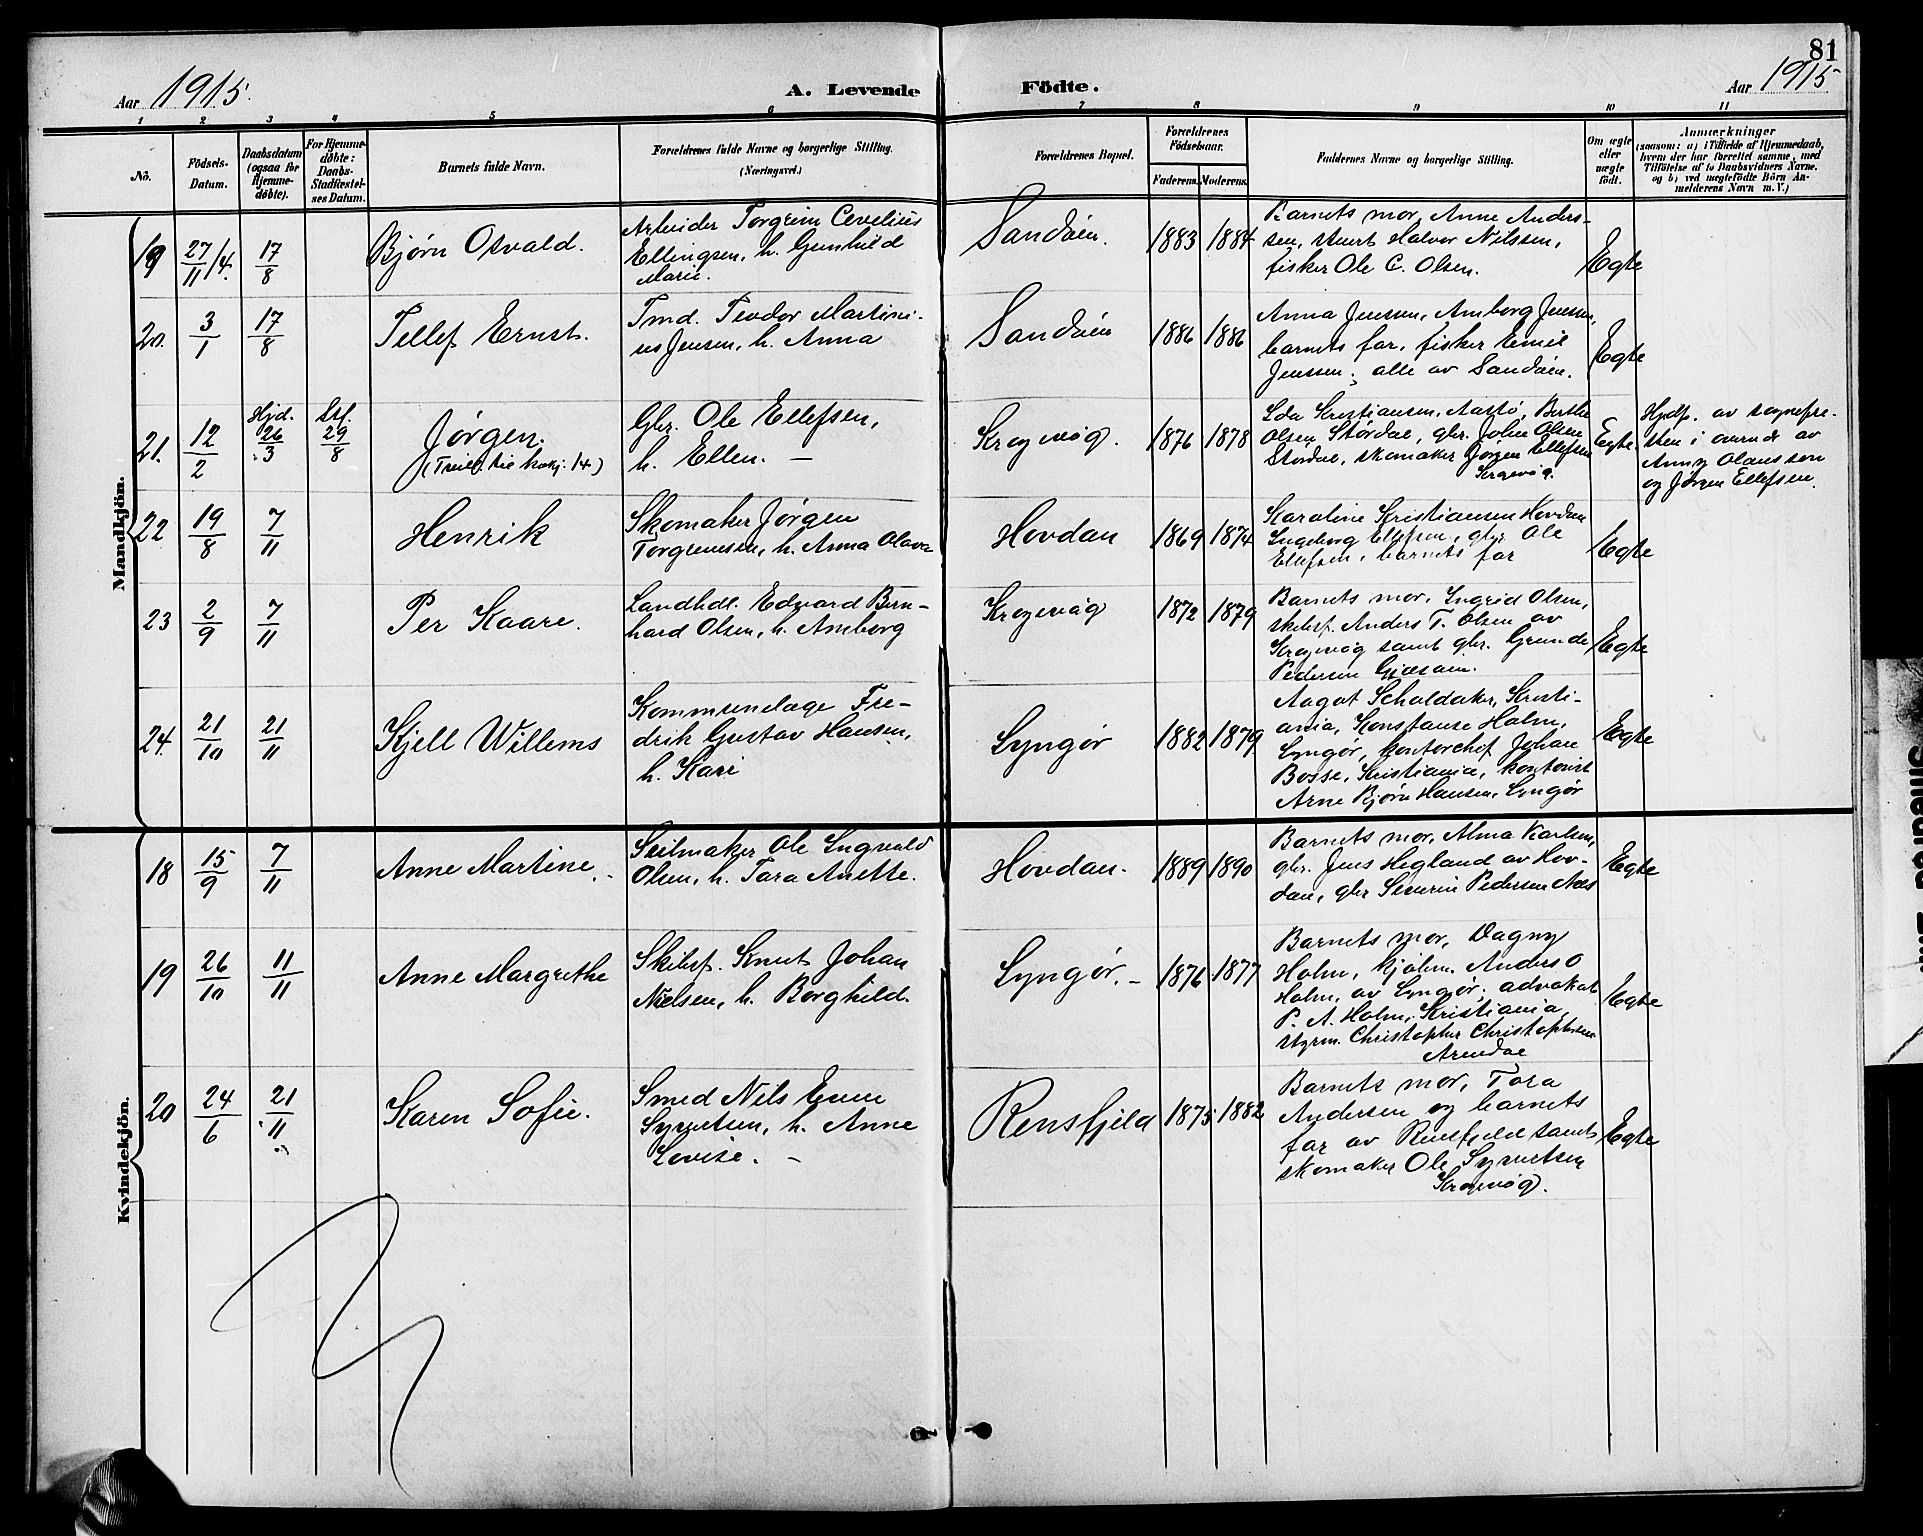 81
Aar 1915.
A. Levende
Födte.
Aar 1915
1 2 3 4 5 6 7 8 9 10 11
No.
Födsels-
Datum.
Daabsdatum
(ogsaa for
Hjemme-
døbte).
For Hjemme-
døbte:
Daabs-
Stadfæstel-
ses Datum.
Barnets fulde Navn.
Forældrenes fulde Navne og borgerlige Stilling.
(Næringsvei.)
Forældrenes Bopæl.
Forældrenes
Födselsaar.
Faderens. Moderens.
Faddernes Navne og borgerlig Stilling.
Om ægte
eller
uægte
født.
Anmærkninger
(saasom: a) i Tilfælde af Hjemmedaab,
hvem der har forrettet samme, med
Tilföielse af to Daabsvidners Navne.
og b) ved uægtefödte Börn An-
melderens Navn m. V.)
Mandkjön.
19 27/11/14. 17/8
Bjørn Osvald.
Arbeider Torgrim Cevelius
Ellingsen, h. Gunhild
Marie.
Sandøen. 1883 1884
Barnets mor, Anne Anders-
sen, stuert Halvor Nilssen,
fisker Ole C. Olsen.
Egte
20. 3/1 17/8
Tellef Ernst.
Tmd. Teodor Martini-
us Jensen, h. Anna
Sandøen 1886 1886
Anna Jensen, Amborg Jensen,
barnets far, fisker Emil
Jenssen; alle av Sandøen.
Egte
21. 12/2 Hjd. 26/3 Stf. 29/8
Jørgen.
Gbr. Ole Ellefsen,
h. Ellen. –
Krogevåg. 1876 1878
Lda Kristiansen, Aastø, Berthe
Olsen Stordal, gbr. John Olsen
Stordal, skomaker Jørgen Ellefsen
Krogevåg.
Egte
Hjdp. av sognepre-
sten i overvær av
Anny Olaussen
og Jørgen Ellefsen.
22 19/8 7/11
Henrik
Skomaker Jørgen
Torgrimsen, h. Anna Olava
Hovdan 1869 1874
Karoline Kristiansen Hovdan
Ingeborg Ellefsen, gbr. Ole
Ellefsen, barnets far
Egte
23 2/9 7/11
Per Kaare.
Landhdl. Edvard Bern-
hard Olsen, h. Amborg
Krogevåg 1872 1879
Barnets mor, Ingrid Olsen,
skibsf. Anders T. Olsen av
Krogevåg samt gbr. Grunde
Pedersen
Egte
24. 21/10 21/11
Kjell Willems
Kommunelæge Fre-
drik Gustav Hansen,
h. Kari
Lyngør 1882 1879
Aagot Scholdaker, Kristi-
ania, Konstanse Holm,
Lyngør, kontorchef Johan
Bosse, Kristiania, kontorist
Arne Bjørn Hansen, Lyngør
Egte
Kvindekjön.
18 15/9 7/11
Anne Martine.
Seilmaker Ole Ingvald
Olsen, h. Tara Anette.
Hovdan. 1889 1890
Barnets mor, Alma Karlsen,
gbr. Jens Hegland av Hov-
dan, gbr Severin Pedersen Næs
Egte
19 26/10 11/11
Anne Margrethe
Skibsf. Knut Johan
Nielsen, h. Borghild.
Lyngør. – 1876 1877
Barnets mor, Dagny
Holm, kjøbm. Anders O
Holm, av Lyngør, advokat
P. A. Holm, Kristiania,
styrm. Christopher Christophersen
Arendal
Egte
20 24/6 21/11
Karen Sofie.
Smed Nils Enne
Syvertsen, h. Anne
Lovise. –
Rensfjeld 1875 1882
Barnets mor, Tora
Andersen og barnets
far av Rensfjeld samt
skomaker Ole Syvertsen
Krogevåg.
Egte